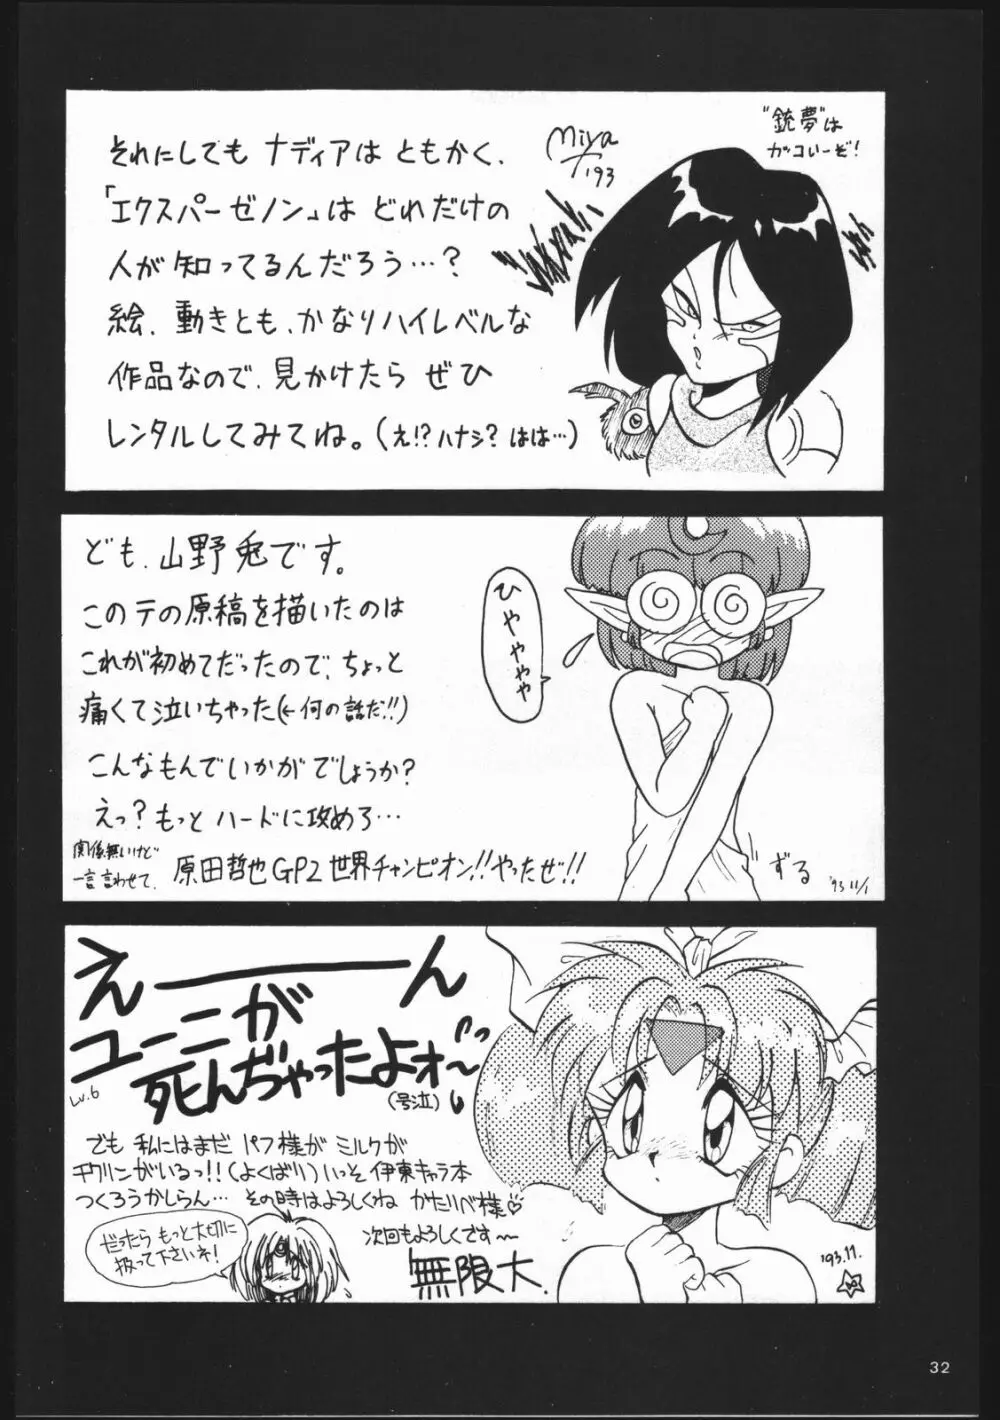 それにしても ナディアは ともかく、
「エクスパーゼノン」は どれだけの
人が 知ってるんだろう…?
絵、動きとも、かなりハイレベルな
作品なので、見かけたら ぜひ
レンタルしてみてね。(え!?ハナシ? はは…)
Miya
'93
"銃夢"は
ガッコいーぞ!
ども、山野兎です。
このテの原稿を描いたのは
これが初めてだったので、ちょっと
痛くて泣いちゃった(←何の話だ!!)
こんなもんでいかがでしょうか?
えっ? もっと ハードに攻めろ…
関係無いけど
一言言わせて、
原田哲也GP2世界チャンピオン!!やったぜ!!
ひゃゃゃゃ
ずる
'93 11/1
えーーん
ユーニが
Lv.6
死んぢゃったよォ〜
(号泣)
でも 私にはまだ パフ様が ミルクが
チウリンがいるっ!!(よくばり)いっそ 伊東キャラ本
つくろうかしらん… その時はよろしくね かたリベ様♡
だったら もっと大切に
扱って下さいネ!
次回もよろしくです〜
無限大.
'93.11.
32